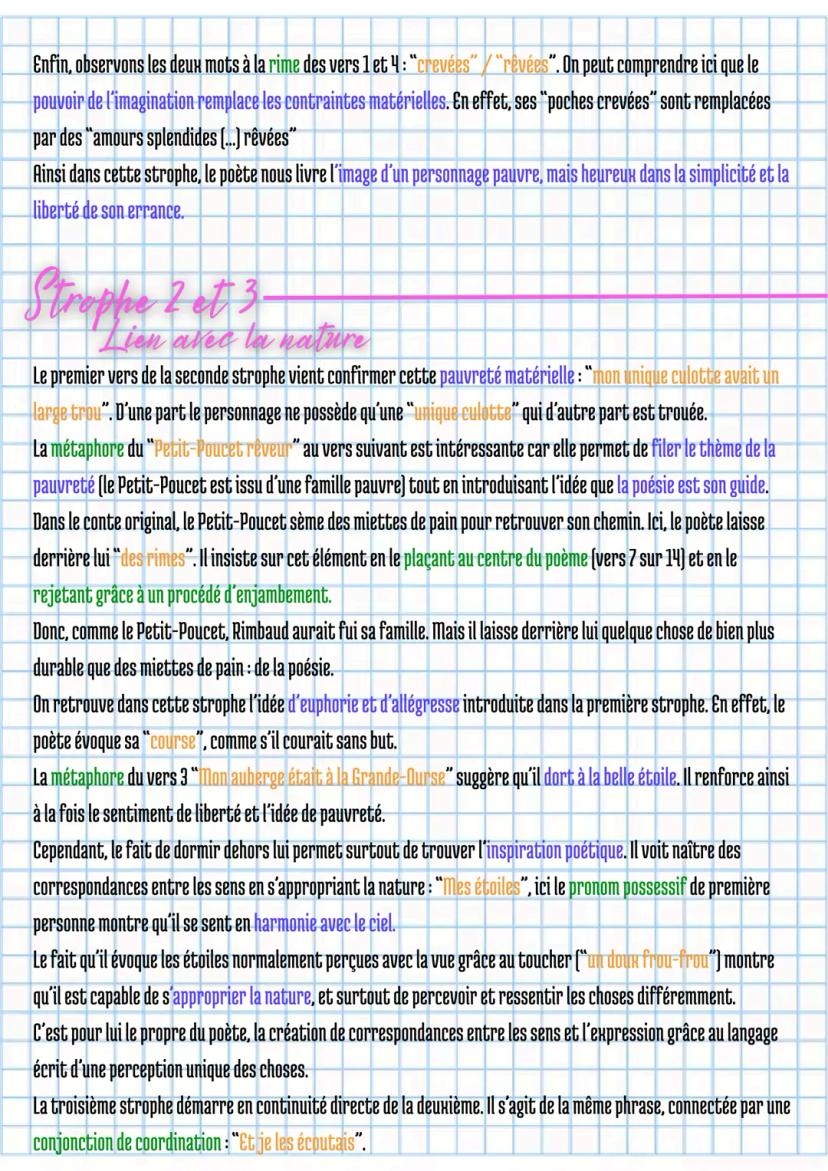 Enfin, observons les deux mots à la rime des vers 1 et 4 : “crevées” / “rêvées”. On peut comprendre ici que le
pouvoir de l'imagination remplace les contraintes matérielles. En effet, ses “poches crevées” sont remplacées
par des “amours splendides (...) rêvées”
Ainsi dans cette strophe, le poète nous livre l'image d'un personnage pauvre, mais heureux dans la simplicité et la
liberté de son errance.
Strophe 2 et 3
Lien avec la nature
Le premier vers de la seconde strophe vient confirmer cette pauvreté matérielle : “mon unique culotte avait un
large trou”. D'une part le personnage ne possède qu'une “unique culotte” qui d'autre part est trouée.
La métaphore du “Petit-Poucet rêveur” au vers suivant est intéressante car elle permet de filer le thème de la
pauvreté (le Petit-Poucet est issu d'une famille pauvre) tout en introduisant l'idée que la poésie est son guide.
Dans le conte original, le Petit-Poucet sème des miettes de pain pour retrouver son chemin. Ici, le poète laisse
derrière lui “des rimes”. Il insiste sur cet élément en le plaçant au centre du poème (vers 7 sur 14) et en le
rejetant grâce à un procédé d'enjambement.
Donc, comme le Petit-Poucet, Rimbaud aurait fui sa famille. Mais il laisse derrière lui quelque chose de bien plus
durable que des miettes de pain : de la poésie.
On retrouve dans cette strophe l'idée d'euphorie et d'allégresse introduite dans la première strophe. En effet, le
poète évoque sa “course”, comme s'il courait sans but.
La métaphore du vers 3 “Mon auberge était à la Grande-Ourse” suggère qu'il dort à la belle étoile. Il renforce ainsi
à la fois le sentiment de liberté et l'idée de pauvreté.
Cependant, le fait de dormir dehors lui permet surtout de trouver l'inspiration poétique. Il voit naître des
correspondances entre les sens en s'appropriant la nature : “Mes étoiles”, ici le pronom possessif de première
personne montre qu'il se sent en harmonie avec le ciel.
Le fait qu'il évoque les étoiles normalement perçues avec la vue grâce au toucher (“un doux frou-frou”) montre
qu'il est capable de s'approprier la nature, et surtout de percevoir et ressentir les choses différemment.
C'est pour lui le propre du poète, la création de correspondances entre les sens et l'expression grâce au langage
écrit d'une perception unique des choses.
La troisième strophe démarre en continuité directe de la deuxième. Il s'agit de la même phrase, connectée par une
conjonction de coordination : “Et je les écoutais”.